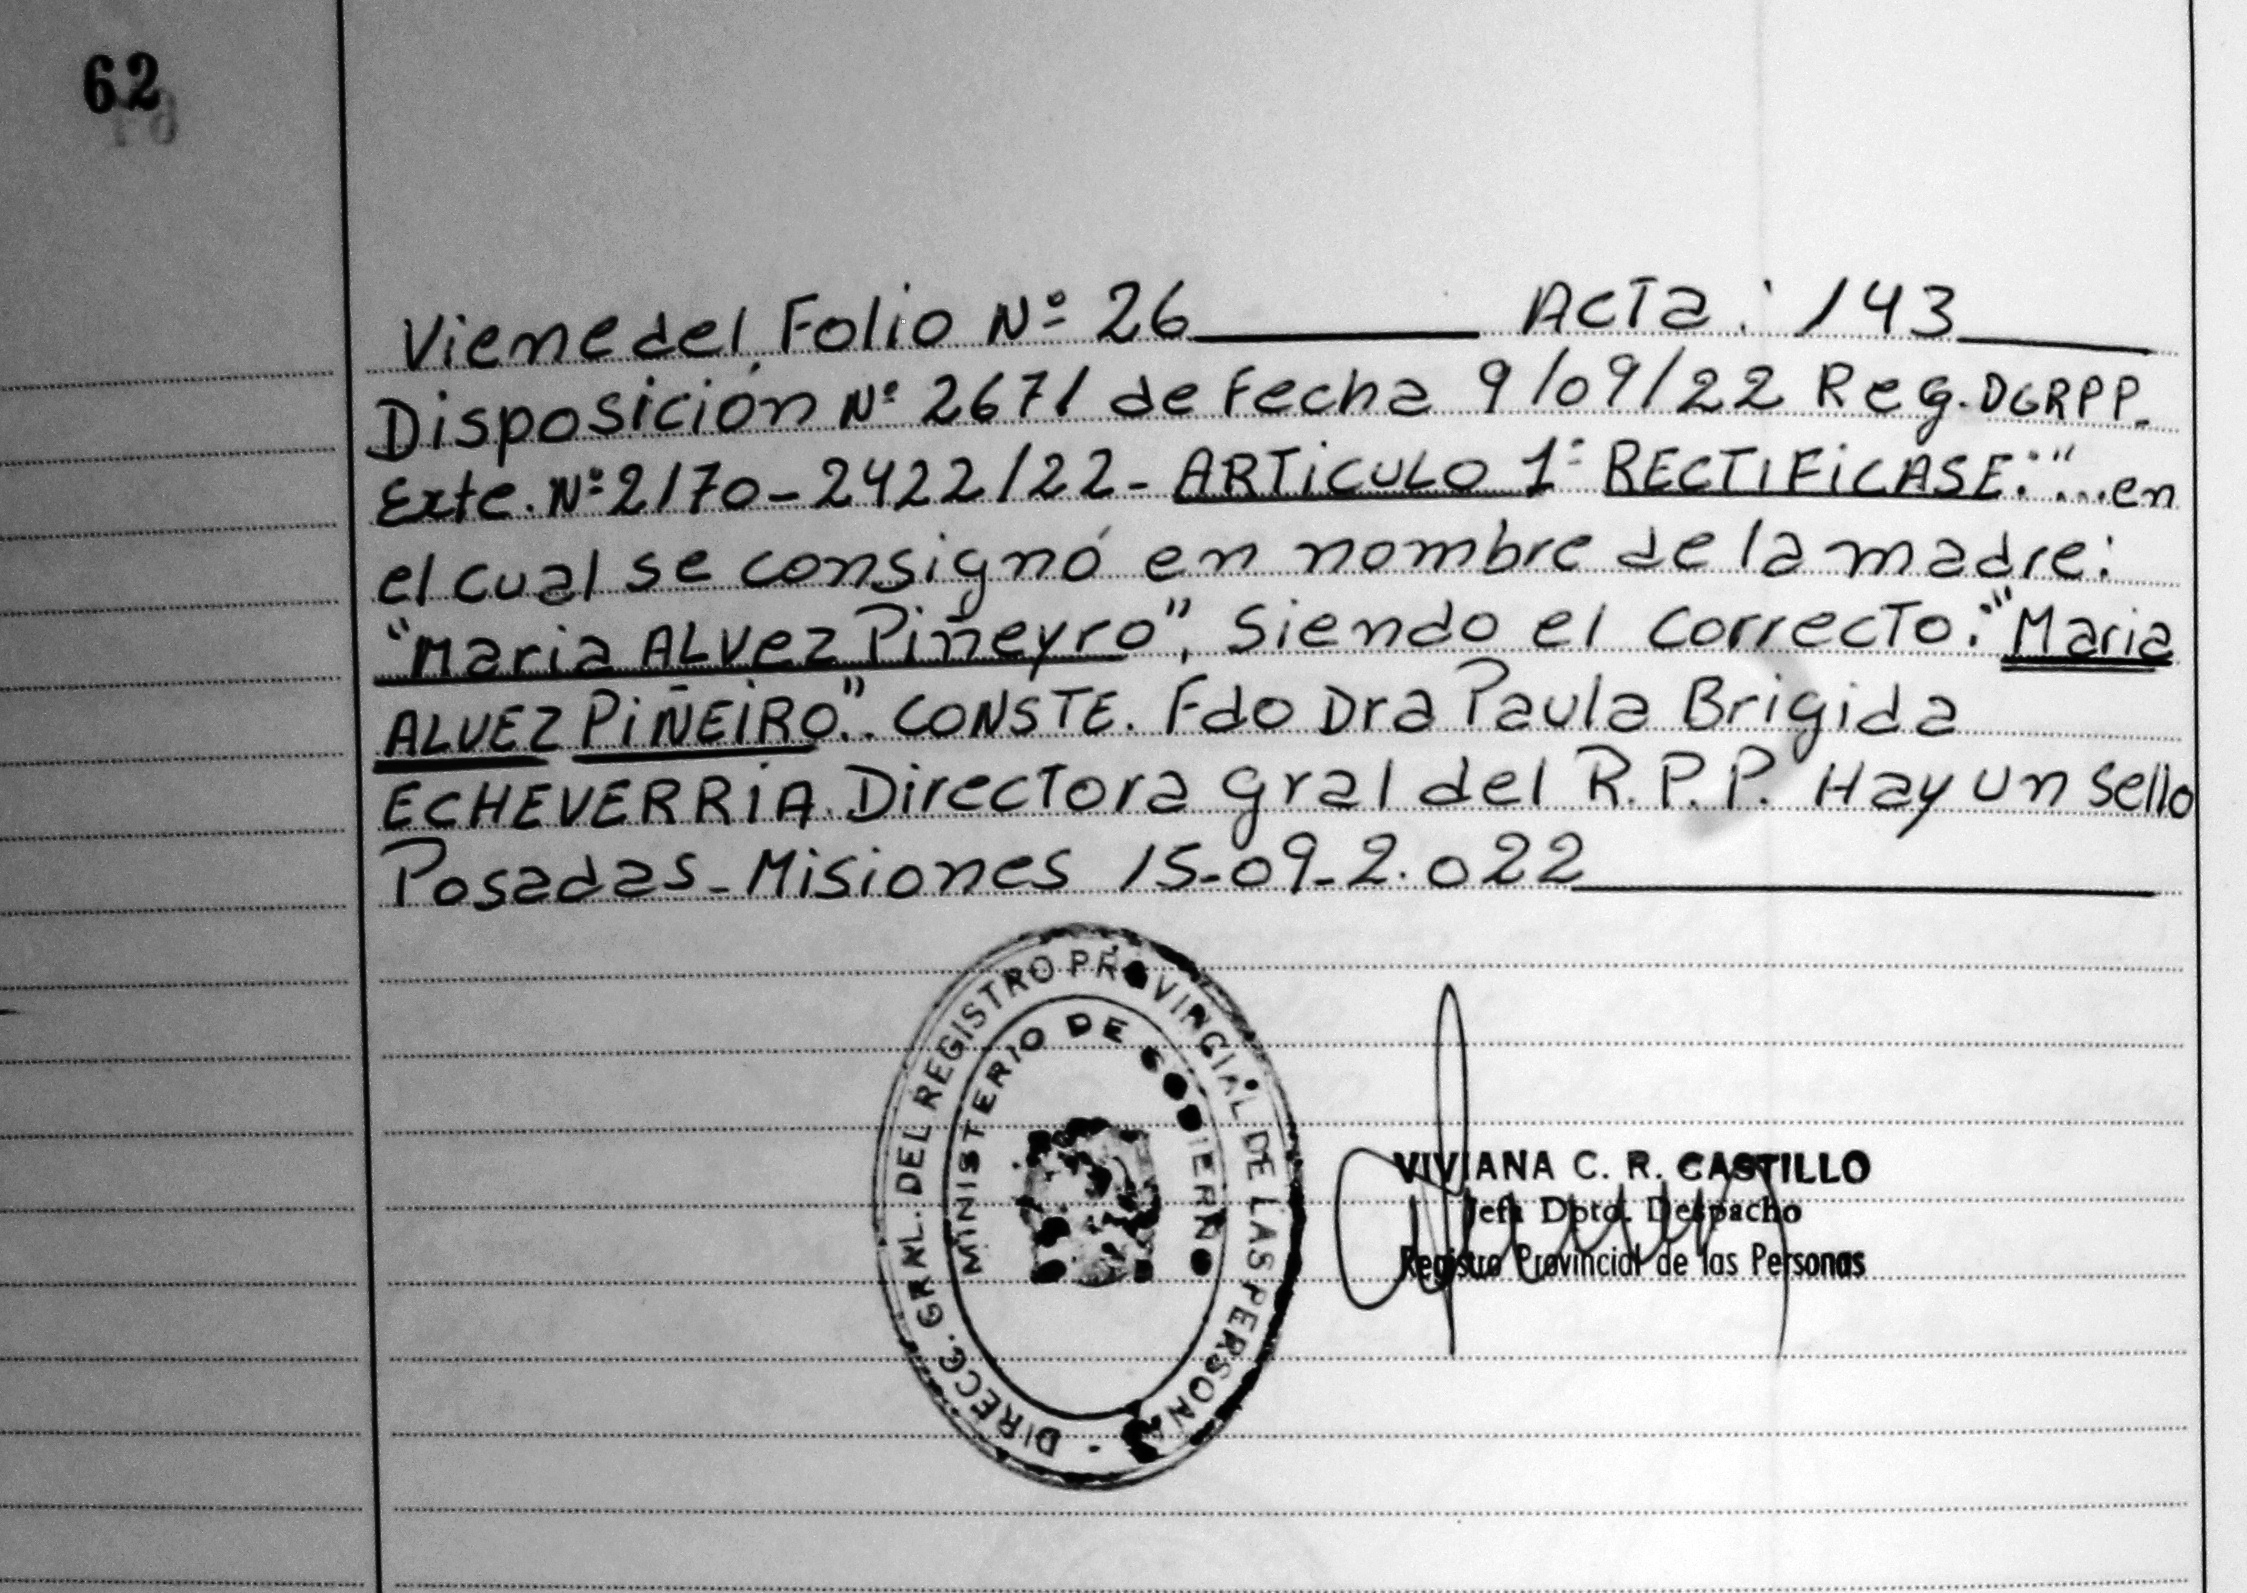 62
Viene del Folio Nº 26 Acta: 143
Disposición Nº 2671 de Fecha 9/09/22 Reg. DGRPP.
Exte. Nº 2170-2422/22- ARTiCULO 1º RECTIFiCASE: "...en
el cual se consignó en nombre de la madre:
"Maria ALVez Piñeyro", siendo el correcto: "Maria
ALVEZ PiÑEIRO". CONSTE. Fdo Dra Paula Brigida
ECHEVERRiA. Directora gral del R.P.P. Hay un sello
Posadas-Misiones 15-09-2.022
DIRECC. GRAL. DEL REGISTRO PROVINCIAL DE LAS PERSONAS
MINISTERIO DE GOBIERNO
VIVIANA C. R. CASTILLO
Jefa Dpto. Despacho
Registro Provincial de las Personas